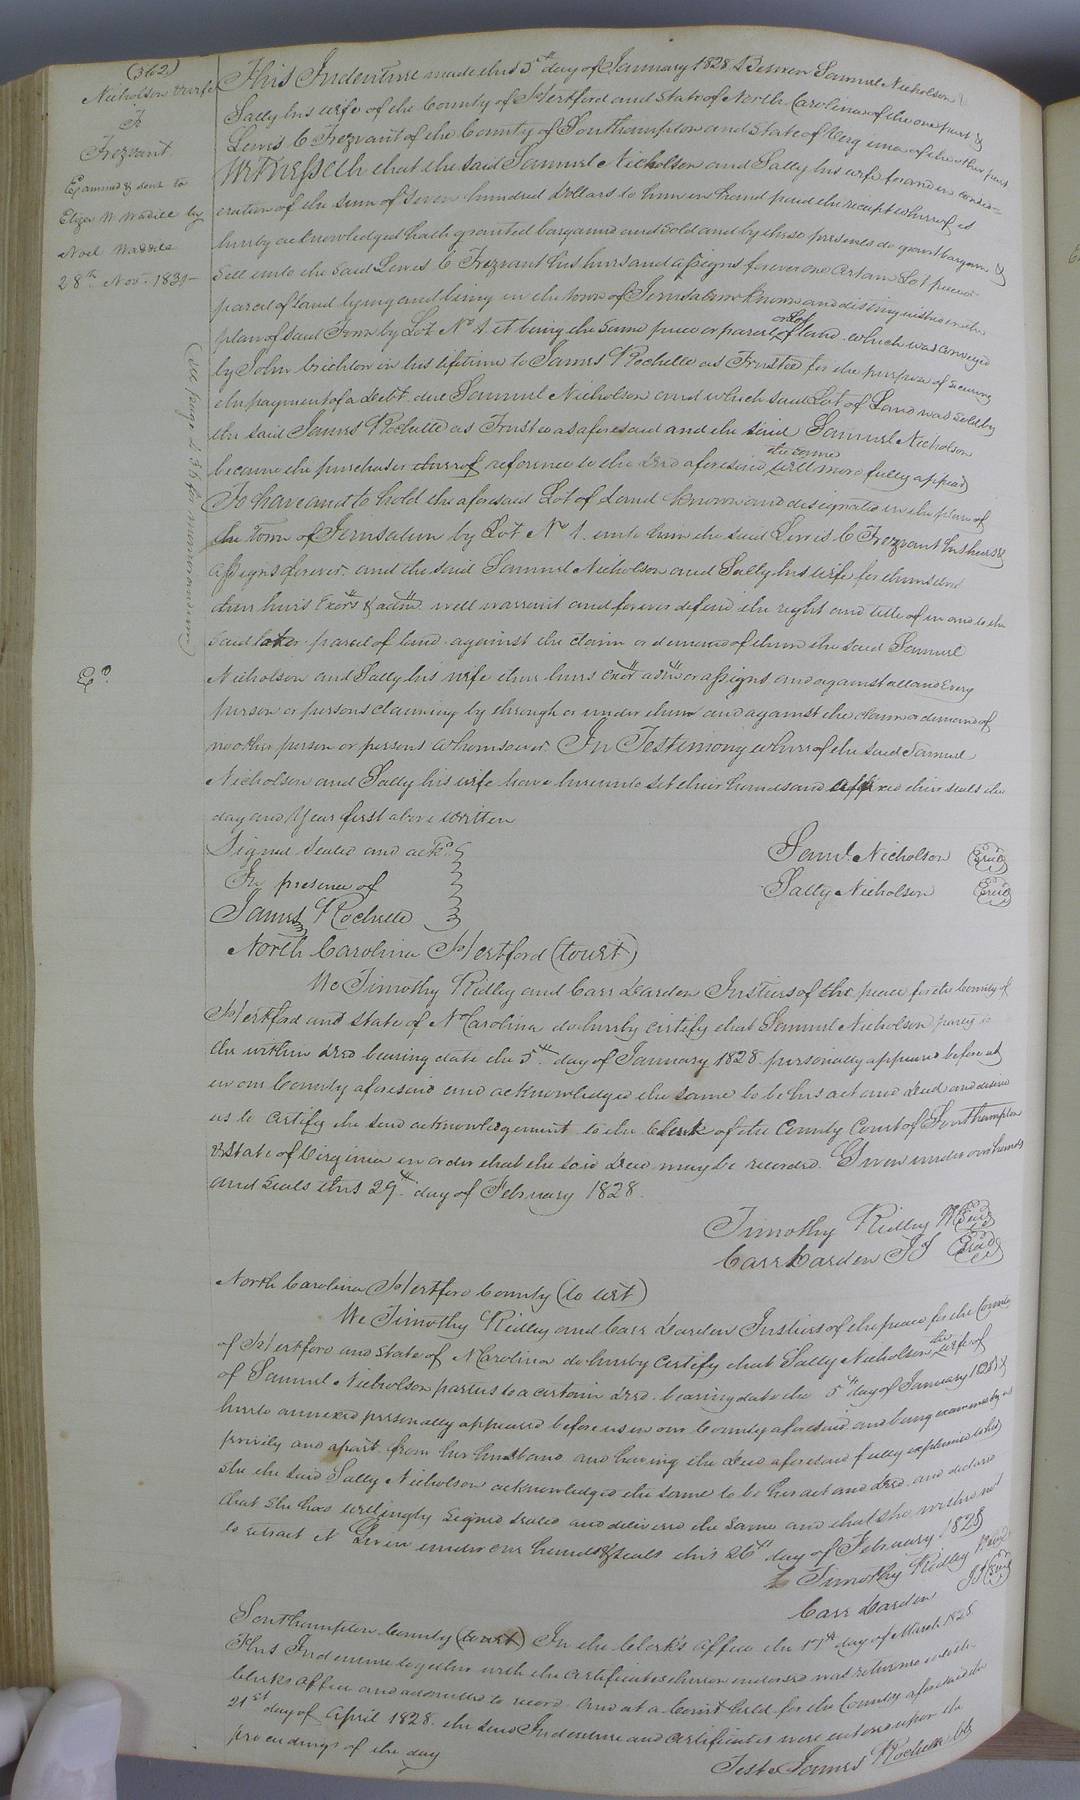 (362)
Nicholson & wife
To
Trezvant
Examined & deld to
Eliza W Waddill by
Noel Waddill
28th Nov. 1831
(see page 436 for memorandum)
Exd
This Indenture made this 5th day of January 1828 Between Samuel Nicholson &
Sally his wife of the County of Hertford and State of North Carolina of the one part &
Lewis C Trezvant of the County of Southampton and State of Virginia of the other part
Witnesseth that the said Samuel Nicholson and Sally his wife for and in consid-
eration of the sum of Seven hundred Dollars to him in hand paid the receipt whereof is
hereby acknowledged hath granted bargained and sold and by these presents do grant bargain &
sell unto the said Lewis C Trezvant his heirs and assigns forever one certain Lot piece or
parcel of land lying and being in the town of Jerusalem known and distinguished in the
plan of said Town by Lot No 1. it being the same piece or parcel or Lot of land which was conveyed
by John Crichlow in his lifetime to James Rochelle as Trustee for the purpose of securing
the payment of a Debt due Samuel Nicholson and which said Lot of Land was sold by
the said James Rochelle as Trustee as aforesaid and the said Samuel Nicholson
became the purchaser thereof reference to the deed aforesaid the same will more fully appear
To have and to hold the aforesaid Lot of Land known and designated in the plan of
the Town of Jerusalem by Lot No 1. unto him the said Lewis C Trezvant his heirs &
assigns forever. and the said Samuel Nicholson and Sally his wife for themselves
their heirs Exors & admrs will warrant and forever defend the right and title of in and to the
said lot or parcel of land against the claim or demand of them the said Samuel
Nicholson and Sally his wife their heirs exors admrs or assigns and against all and Every
person or persons claiming by through or under them and against the claim or demand of
no other person or persons whomsoever. In Testimony whereof the said Samuel
Nicholson and Sally his wife have hereunto set their hands and affixed their seals the
day and Year first above written
Signed Sealed and ackd
In presence of
James Rochelle
Saml. Nicholson (Seal)
Sally Nicholson (Seal)
North Carolina Hertford (towit)
We Timothy Ridley and Carr Darden Justices of the peace for the County of
Hertford and State of N Carolina do hereby certify that Samuel Nicholson party to
the within deed bearing date the 5th day of January 1828 personally appeared before us
in our County aforesaid and acknowledged the same to be his act and deed and desired
us to certify the said acknowledgement to the Clerk of the County Court of Southampton
& State of Virginia in order that the said Deed may be recorded. Given under our hands
and seals this 29th day of February 1828.
Timothy Ridley (Seal)
Carr Darden JJ (Seal)
North Carolina Hertford County (to wit)
We Timothy Ridley and Carr Darden Justices of the peace for the County
of Hertford and State of N Carolina do hereby certify that Sally Nicholson the wife of
of Samuel Nicholson parties to a certain deed bearing date the 5th day of January 1828 &
hereto annexed personally appeared before us in our County aforesaid and being examined by us
privily and apart from her husband and having the Deed aforesaid fully explained to her
she the said Sally Nicholson acknowledged the same to be her act and deed and declared
that she had willingly signed sealed and delivered the same and that she wished not
to retract it Given under our hands & seals this 26th day of February 1828
Timothy Ridley (Seal)
Carr Darden JJ (Seal)
Southampton County (towit) In the Clerk's office the 17th day of March 1828.
This Indenture together with the certificates thereon endorsed was returned in the
Clerks office and admitted to record. And at a Court held for the County aforesaid the
21st day of April 1828. the said Indenture and certificates were entered upon the
proceedings of the day
Teste James Rochelle Clk